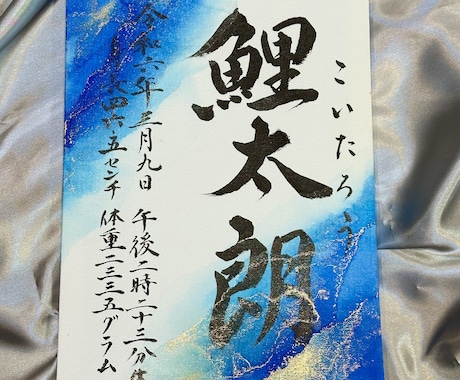 こいたろう
鯉太朗
令和六年三月九日 午後二時二十三分
四六五センチ 体重二三三五グラム